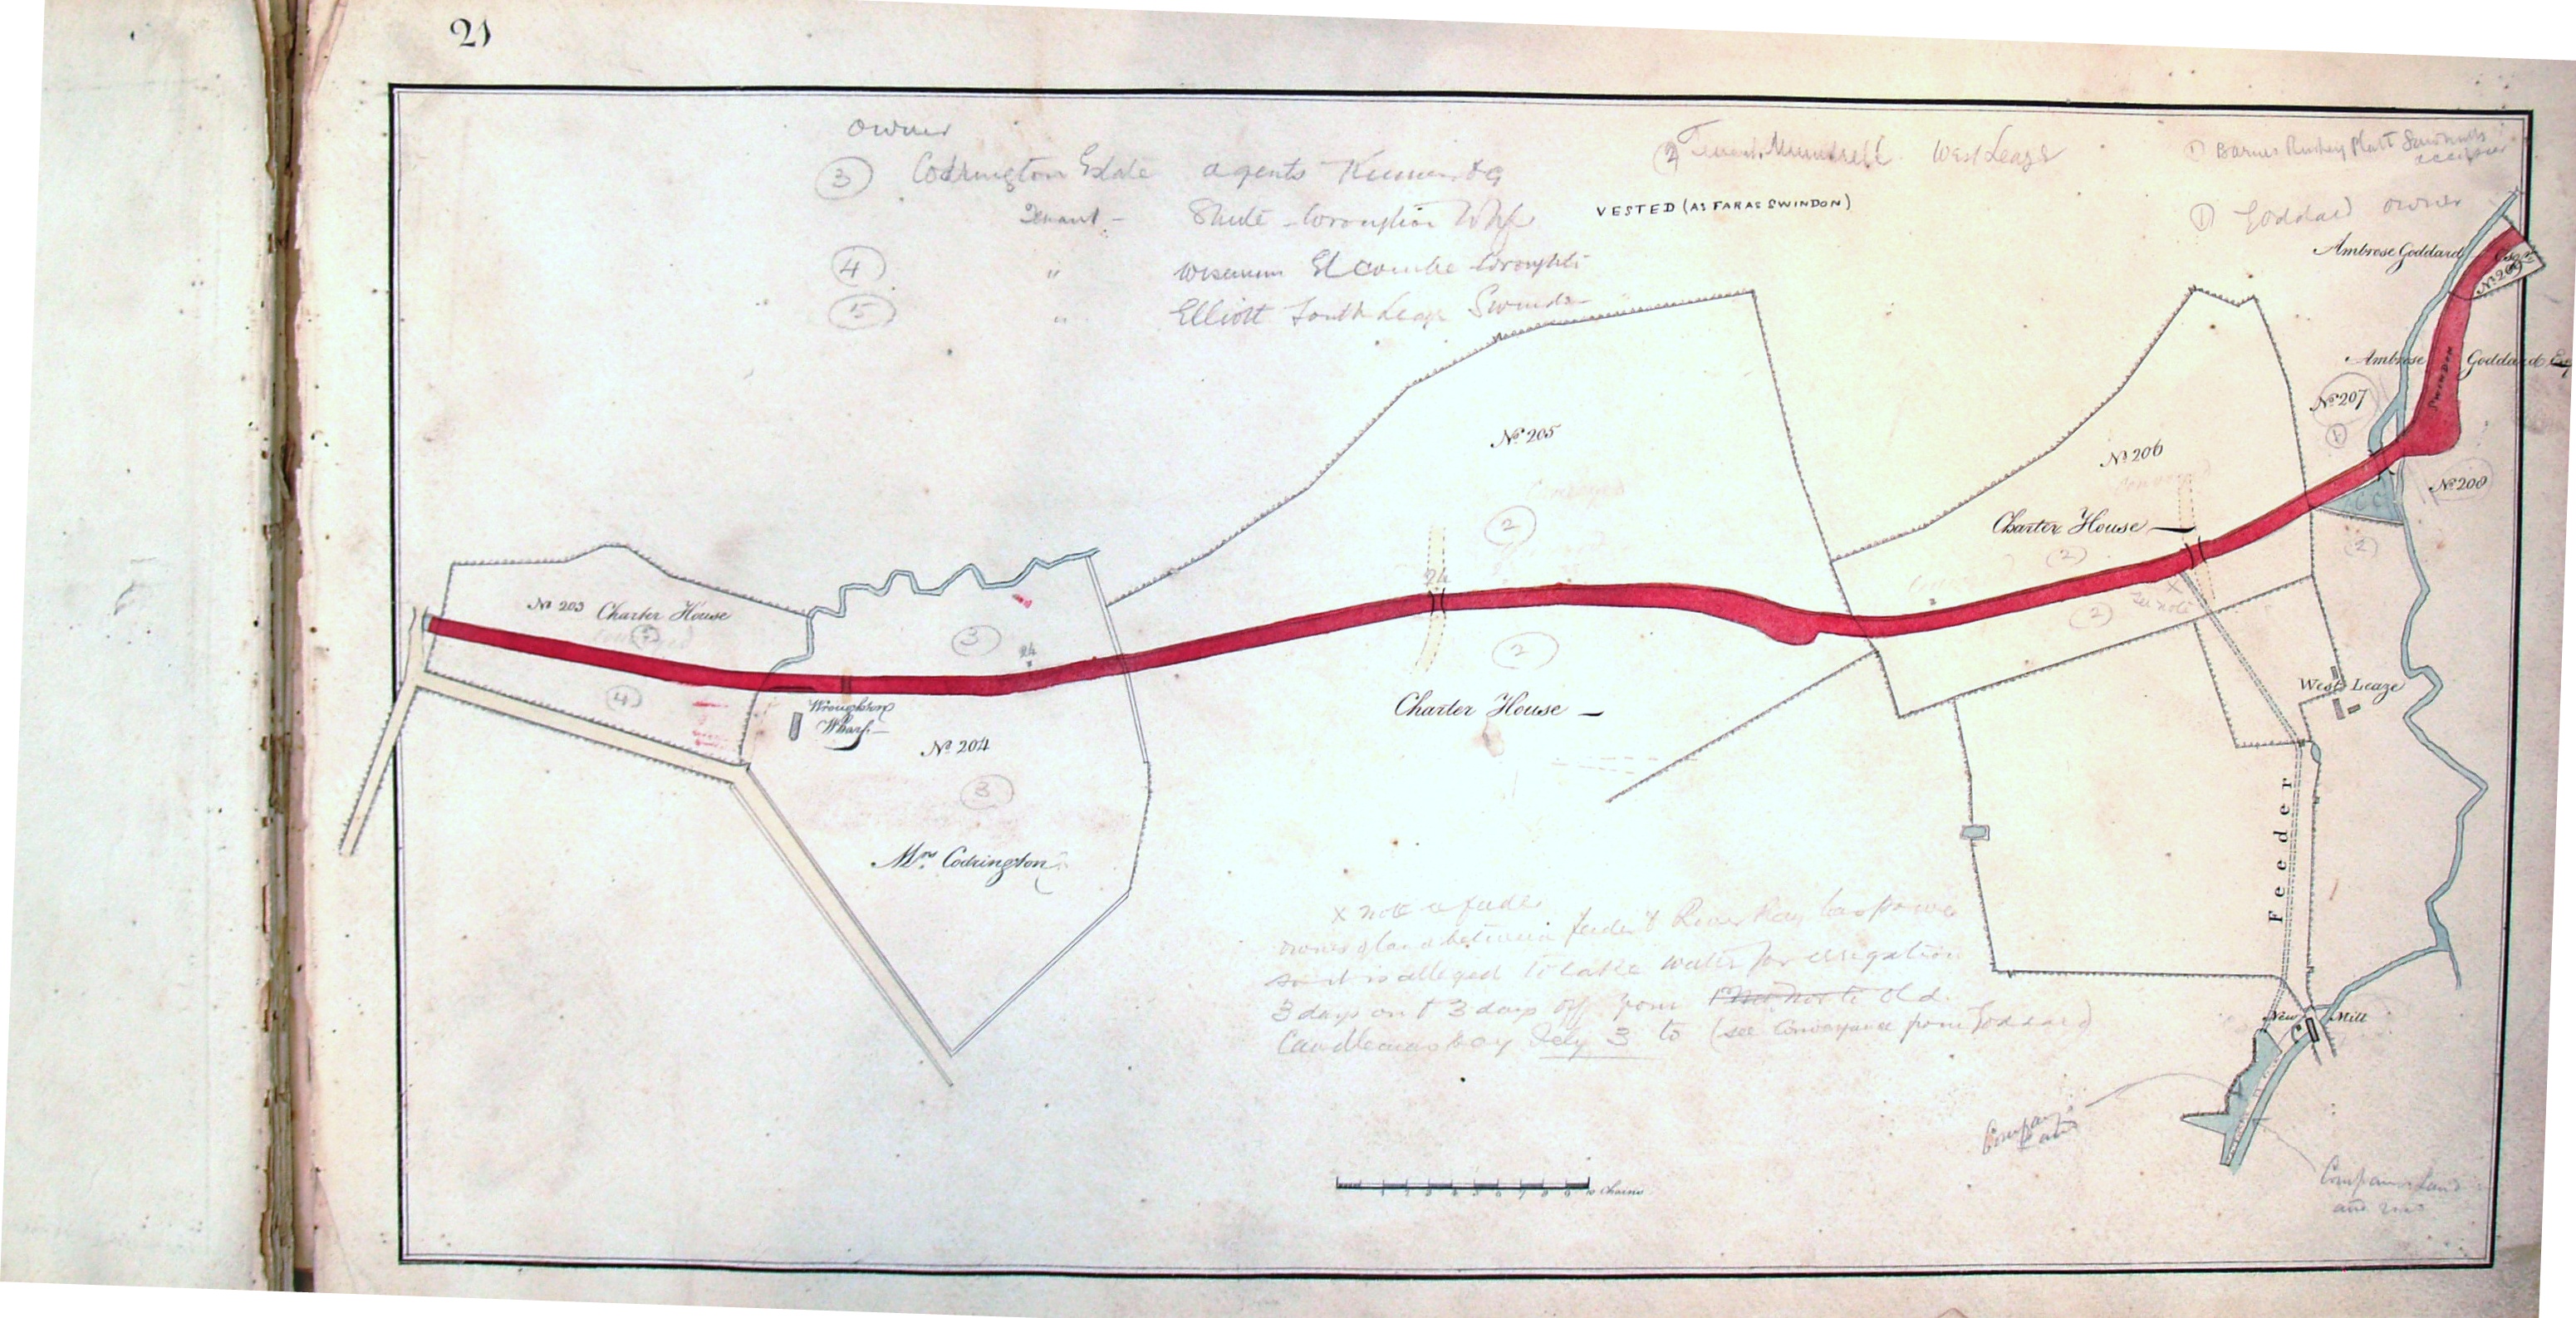 21
owner
3 Codrington Estate agents
Tenant - Shute - Wroughton Whf
4 " Wiseman Elcombe Wroughton
5 " Elliott South Leaze Swindon
2 Tenant West Leaze
VESTED (AS FAR AS SWINDON)
1 Barnes Rushey Platt Swindon
occupier
1 Goddard owner
Ambrose Goddard Esqr
No 209
Ambrose Goddard Esq
SWINDON
No 207
1
No 205
Conveyed
2
No 206
Conveyed
No 208
Charter House
2
2
24
No 203 Charter House
3
24
2
2
See note
4
Wroughton
Wharf
No 204
Charter House
West Leaze
3
Mrs Codrington
Feeder
x note a feeder
owner of land between feeder & River Ray has power
so it is alleged to take water for irrigation
3 days on & 3 days off from Old
Candlemas day to (see Conveyance from Goddard)
New Mill
Company
Company Land
and
1 2 3 4 5 6 7 8 9 10 Chains